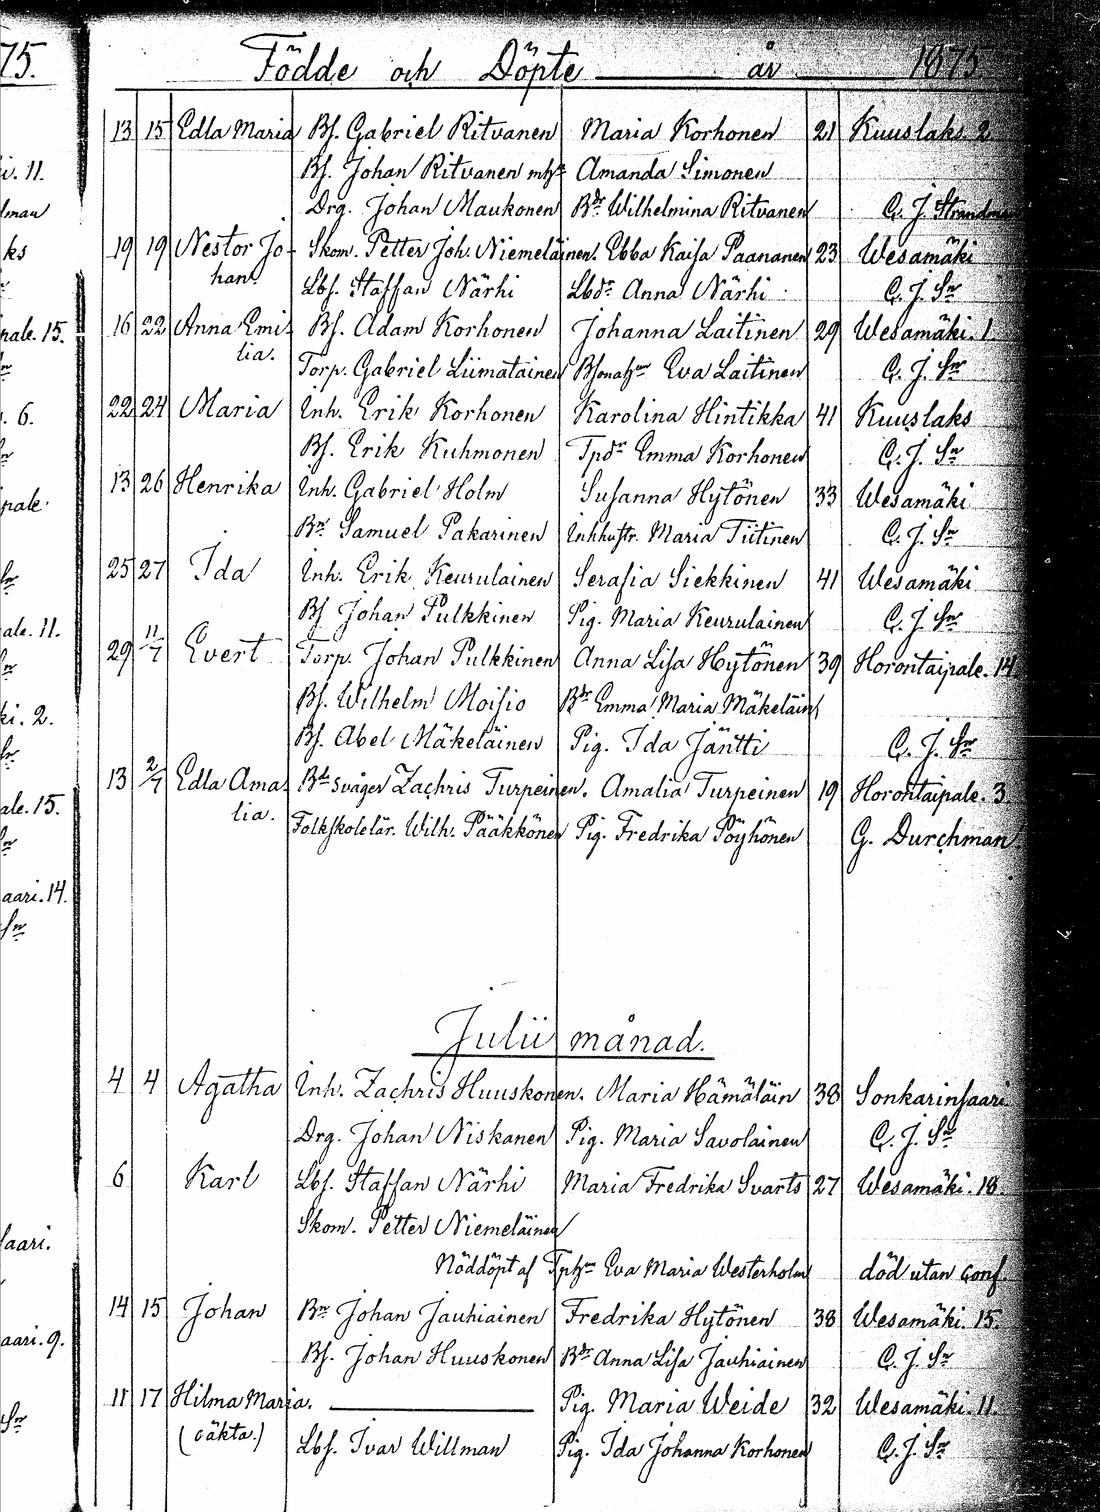 75.
Födde och Döpte år 1875
13 15 Edla Maria Bs. Gabriel Ritvanen Maria Korhonen 21 Kuuslaks. 2
i. 11. Bs. Johan Ritvanen mhu Amanda Simonen
lman Drg. Johan Maukonen Bdr Wilhelmina Ritvanen C. J. Strandman
ks 19 19 Nestor Jo- Skom. Petter Joh. Niemeläinen. Ebba Kaisa Paananen 23 Wesamäki
han. Lbs. Staffan Närhi Lbdr Anna Närhi C. J. Sn
pale. 15. 16 22 Anna Emi- Bs. Adam Korhonen Johanna Laitinen 29 Wesamäki. 1.
lia. Torp. Gabriel Liimatainen Eva Laitinen C. J. Sn
. 6. 22 24 Maria Inh. Erik Korhonen Karolina Hintikka 41 Kuuslaks
Bs. Erik Kuhmonen Tpdr Emma Korhonen C. J. Sn
pale. 13 26 Henrika Inh. Gabriel Holm Susanna Hytönen 33 Wesamäki
Bn Samuel Pakarinen Inhhustr. Maria Tiitinen C. J. Sn
Sn 25 27 Ida Inh. Erik Keurulainen Serafia Siekkinen 41 Wesamäki
Bs Johan Pulkkinen Pig. Maria Keurulainen C. J. Sn
ale. 11. 29 11/7 Evert Torp. Johan Pulkkinen Anna Lisa Hytönen 39 Horontaipale. 14.
Bs. Wilhelm Moisio Bdr Emma Maria Mäkeläin
ki. 2. Bs. Abel Mäkeläinen Pig. Ida Jäntti C. J. Sn
13 2/7 Edla Ama- Bds svåger Zachris Turpeinen. Amalia Turpeinen 19 Horontaipale. 3.
ale. 15. lia. Folkskolelär. Wilh. Pääkkönen Pig. Fredrika Pöyhönen G. Durchman
aari. 14.
Sn
Julii månad.
4 4 Agatha Inh. Zachris Huuskonen. Maria Hämäläin 38 Sonkarinsaari
Drg. Johan Niskanen Pig. Maria Savolainen C. J. Sn
6 Karl Lbs. Staffan Närhi Maria Fredrika Svarts 27 Wesamäki. 18.
Skom. Petter Niemeläinen
saari. Nöddöpt af Tphu Eva Maria Westerholm död utan conf.
14 15 Johan Bn Johan Jauhiainen Fredrika Hytönen 38 Wesamäki. 15.
aari. 9. Bs. Johan Huuskonen Bdr Anna Lisa Jauhiainen C. J. Sn
11 17 Hilma Maria. Pig. Maria Weide 32 Wesamäki. 11.
Sn (oäkta.) Lbs. Ivar Willman Pig. Ida Johanna Korhonen C. J. Sn